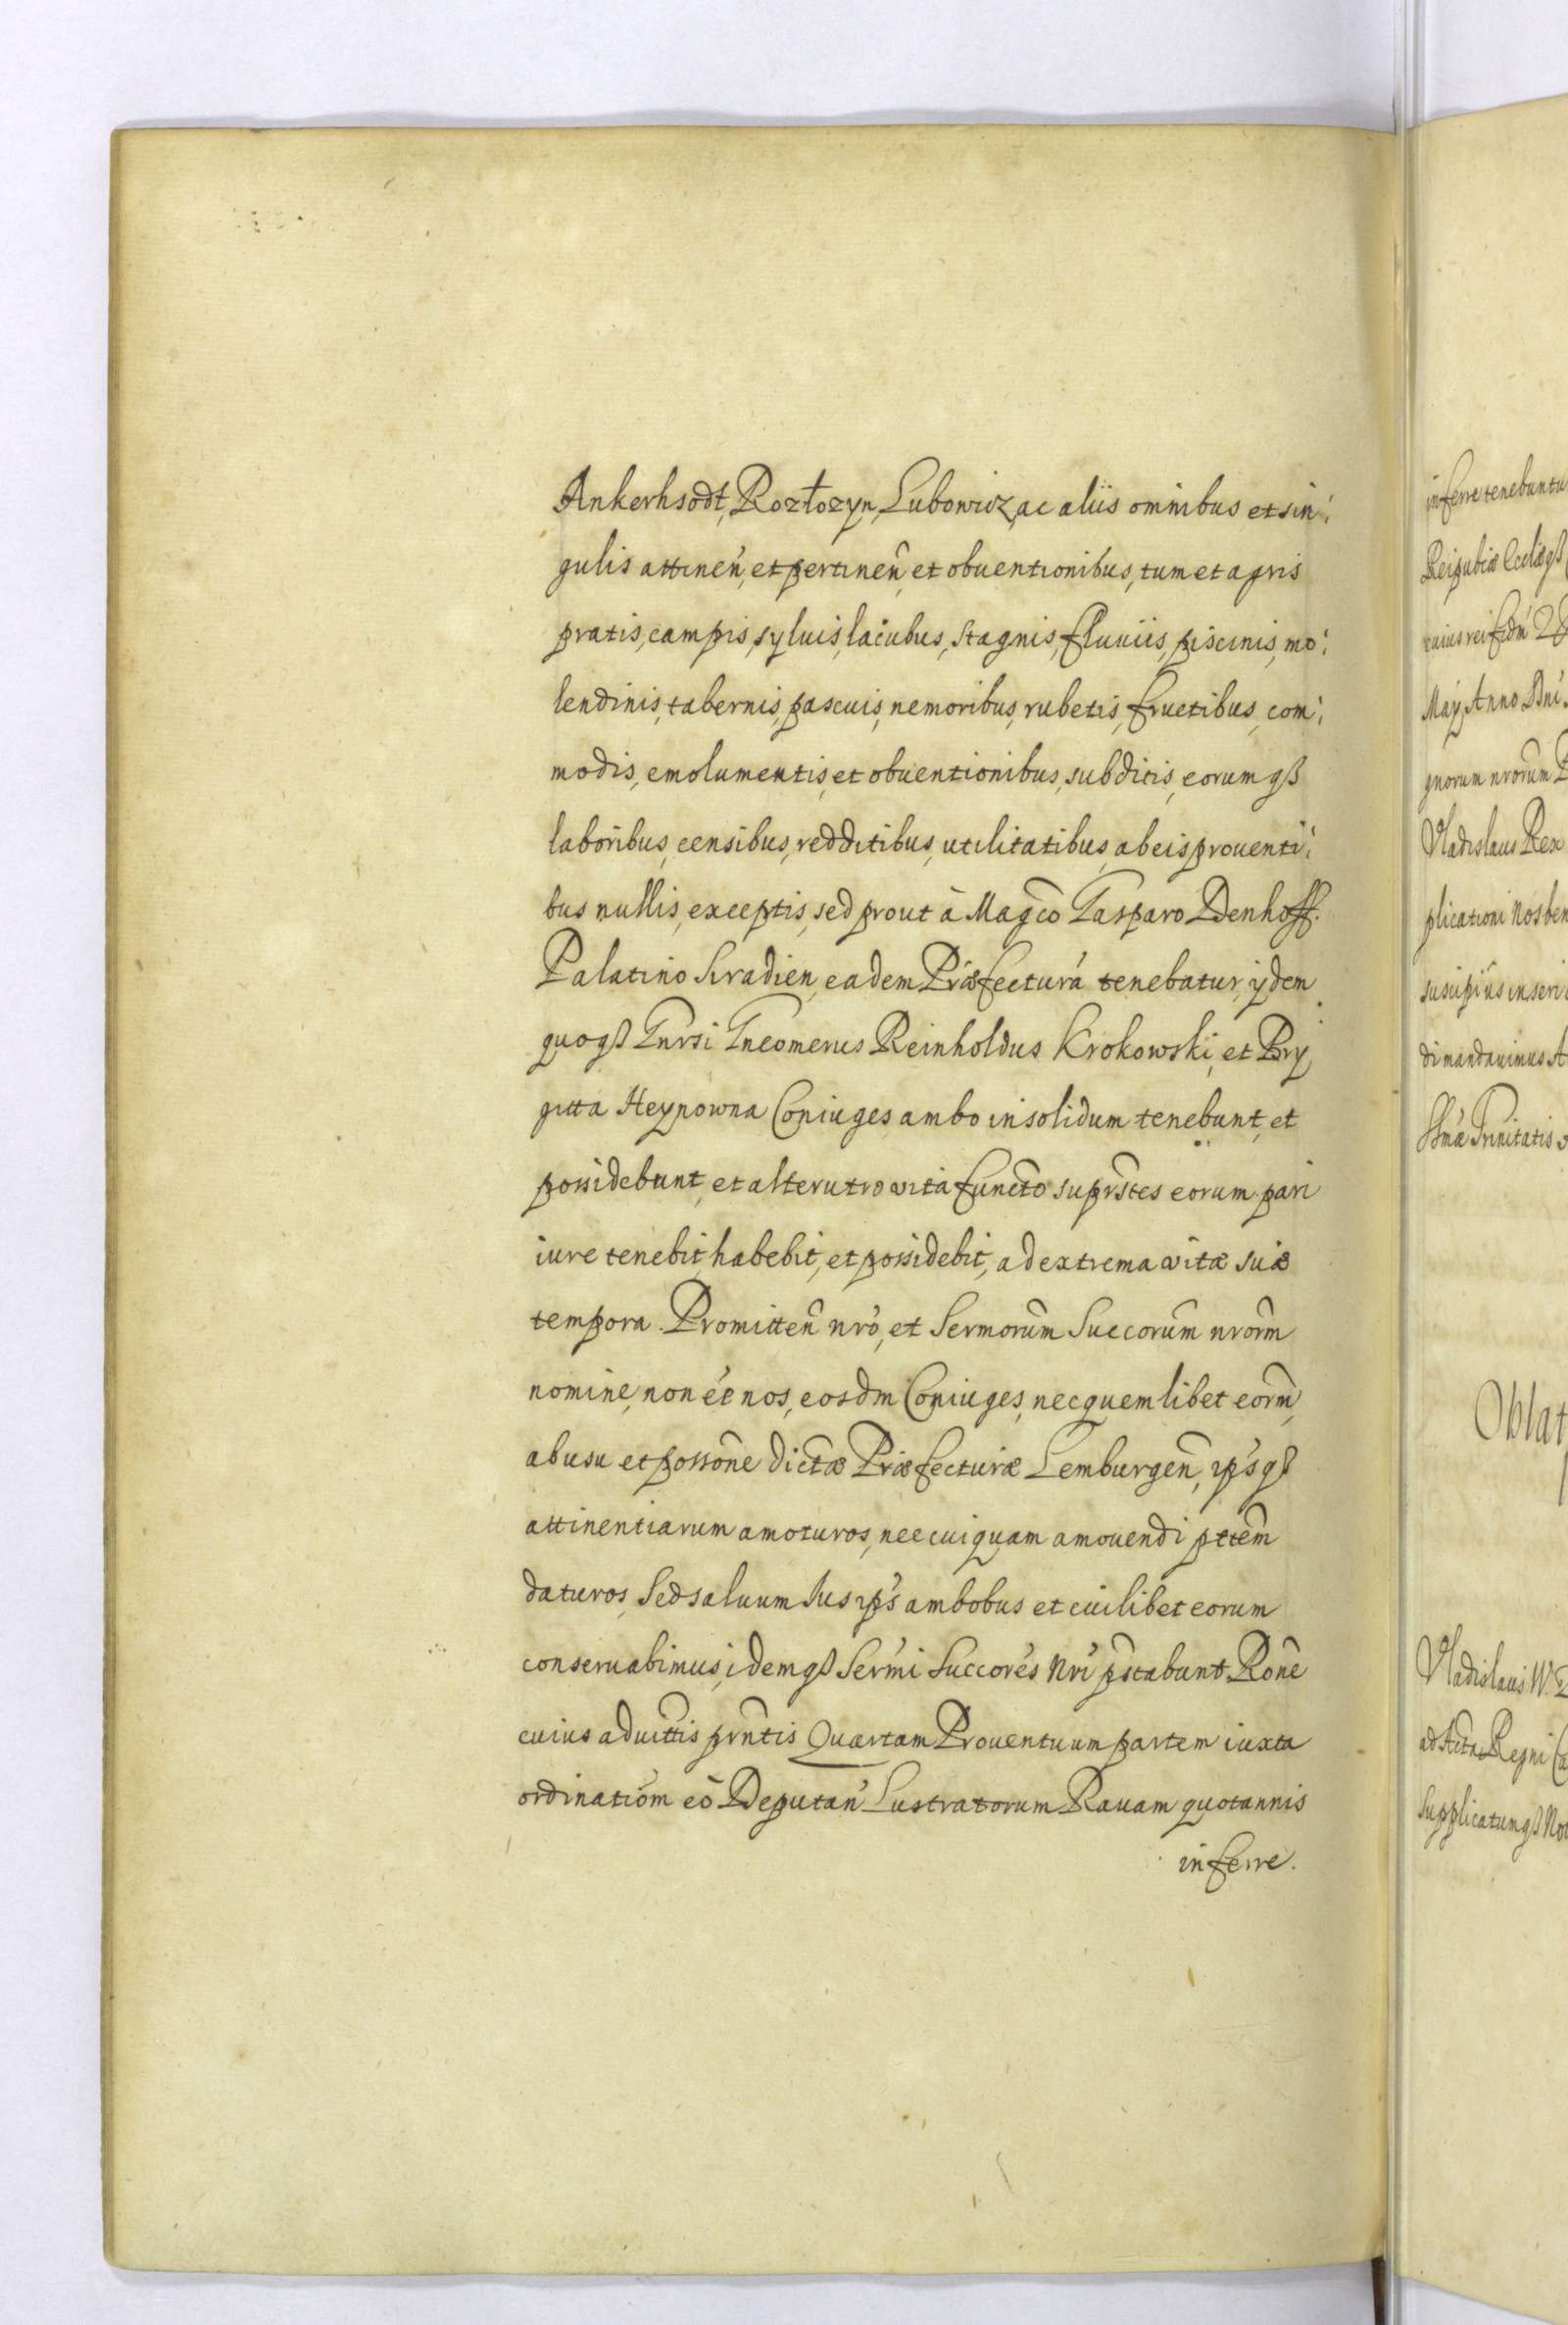 Ankerhsodt, Rozłozyn, Lubowicz, ac aliis omnibus et sin:
gulis attinen, et pertinen, et obuentionibus, tum et agris
pratis, campis, syluis, lacubus, stagnis, fluuiis, piscinis, mo:
lendinis, tabernis, pascuis, nemoribus, rubetis, fructibus, com:
modis, emolumentis, et obuentionibus, subditis, eorumqß
laboribus, censibus, redditibus, utilitatibus, ab eis prouenti:
bus nullis, exceptis, sed prout à Magco Gasparo Denhoff.
Palatino Siradien, eadem Præfectura tenebatur, ijdem
quoqß Gnrsi Gneomerus Reinholdus Krokowski, et Bry
gitta Heynowna Coniuges ambo insolidum tenebunt, et
possidebunt, et alterutro vita functo suprstes eorum pari
iure tenebit, habebit, et possidebit, ad extrema vitæ suæ
tempora. Promitten nro, et Sermorum Succorum nrorm
nomine, non ée nos, eosdm Coniuges, nec quemlibet eorm,
ab usu et possone dictæ Præfecturæ Lemburgen, ipsqß
attinentiarum amoturos, nec cuiquam amouendi pttem
daturos, Sed saluum Ius ips ambobus et cuilibet eorum
conseruabimus, idemqß Sermi Succores Nri pstabunt. Rone
cuius aduittis prntis Quartam Prouentuum partem iuxta
ordinatiom eò Deputan Lustratorum Rauam quotannis
inferre.
inferre tenebuntu
Reipubicæ Ecclæqß
cuius rei fidm
Maij Anno Dni
gnorum nrorum
Vladislaus Rex
plicationi Nos ben
suscipi
di mandauimus A
Ssmæ Trinitatis
Oblat
Vladislaus
ad Acta Regni
Supplicatumqß